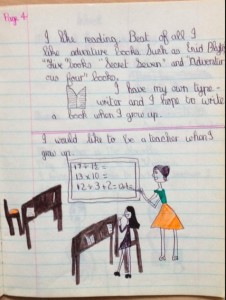 Page 4
I like reading. Best of all I
like adventure books such as Enid Blyton
"Five" books "Secret Seven" and "Adventur
ous four" books.
I have my own type-
writer and I hope to write
a book when I grow up.
I would like to be a teacher when I
grow up.
13 x 10 =
+2 + 3 + 2 =